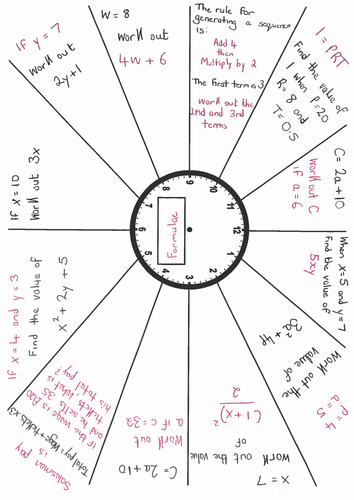 The rule for
generating a sequence
is:
Add 4
then
Multiply by 2
The first term is 3
work out the
2nd and 3rd
terms
I = PRT
Find the value of
I when P=20
R=8 and
T=0.5
C=2a+10
Work out C
if a=6
When x=5 and y=7
Find the value of
5xy
P=4
a=5
Work out the
value of
3a² + 4p
x=7
work out the value
of
(1+x)²
2
C=2a+10
Work out
a if c=32
Salesman pay
is
Total pay = Wage + tickets x 3
if the wage is £200
and he sells 35
tickets what is
his total pay?
If x=4 and y=3
Find the value of
x² + 2y + 5
If x=10
Work out 3x
If y=7
Work out
2y+1
W=8
work out
4w+6
Formulae
12
1
2
3
4
5
6
7
8
9
10
11